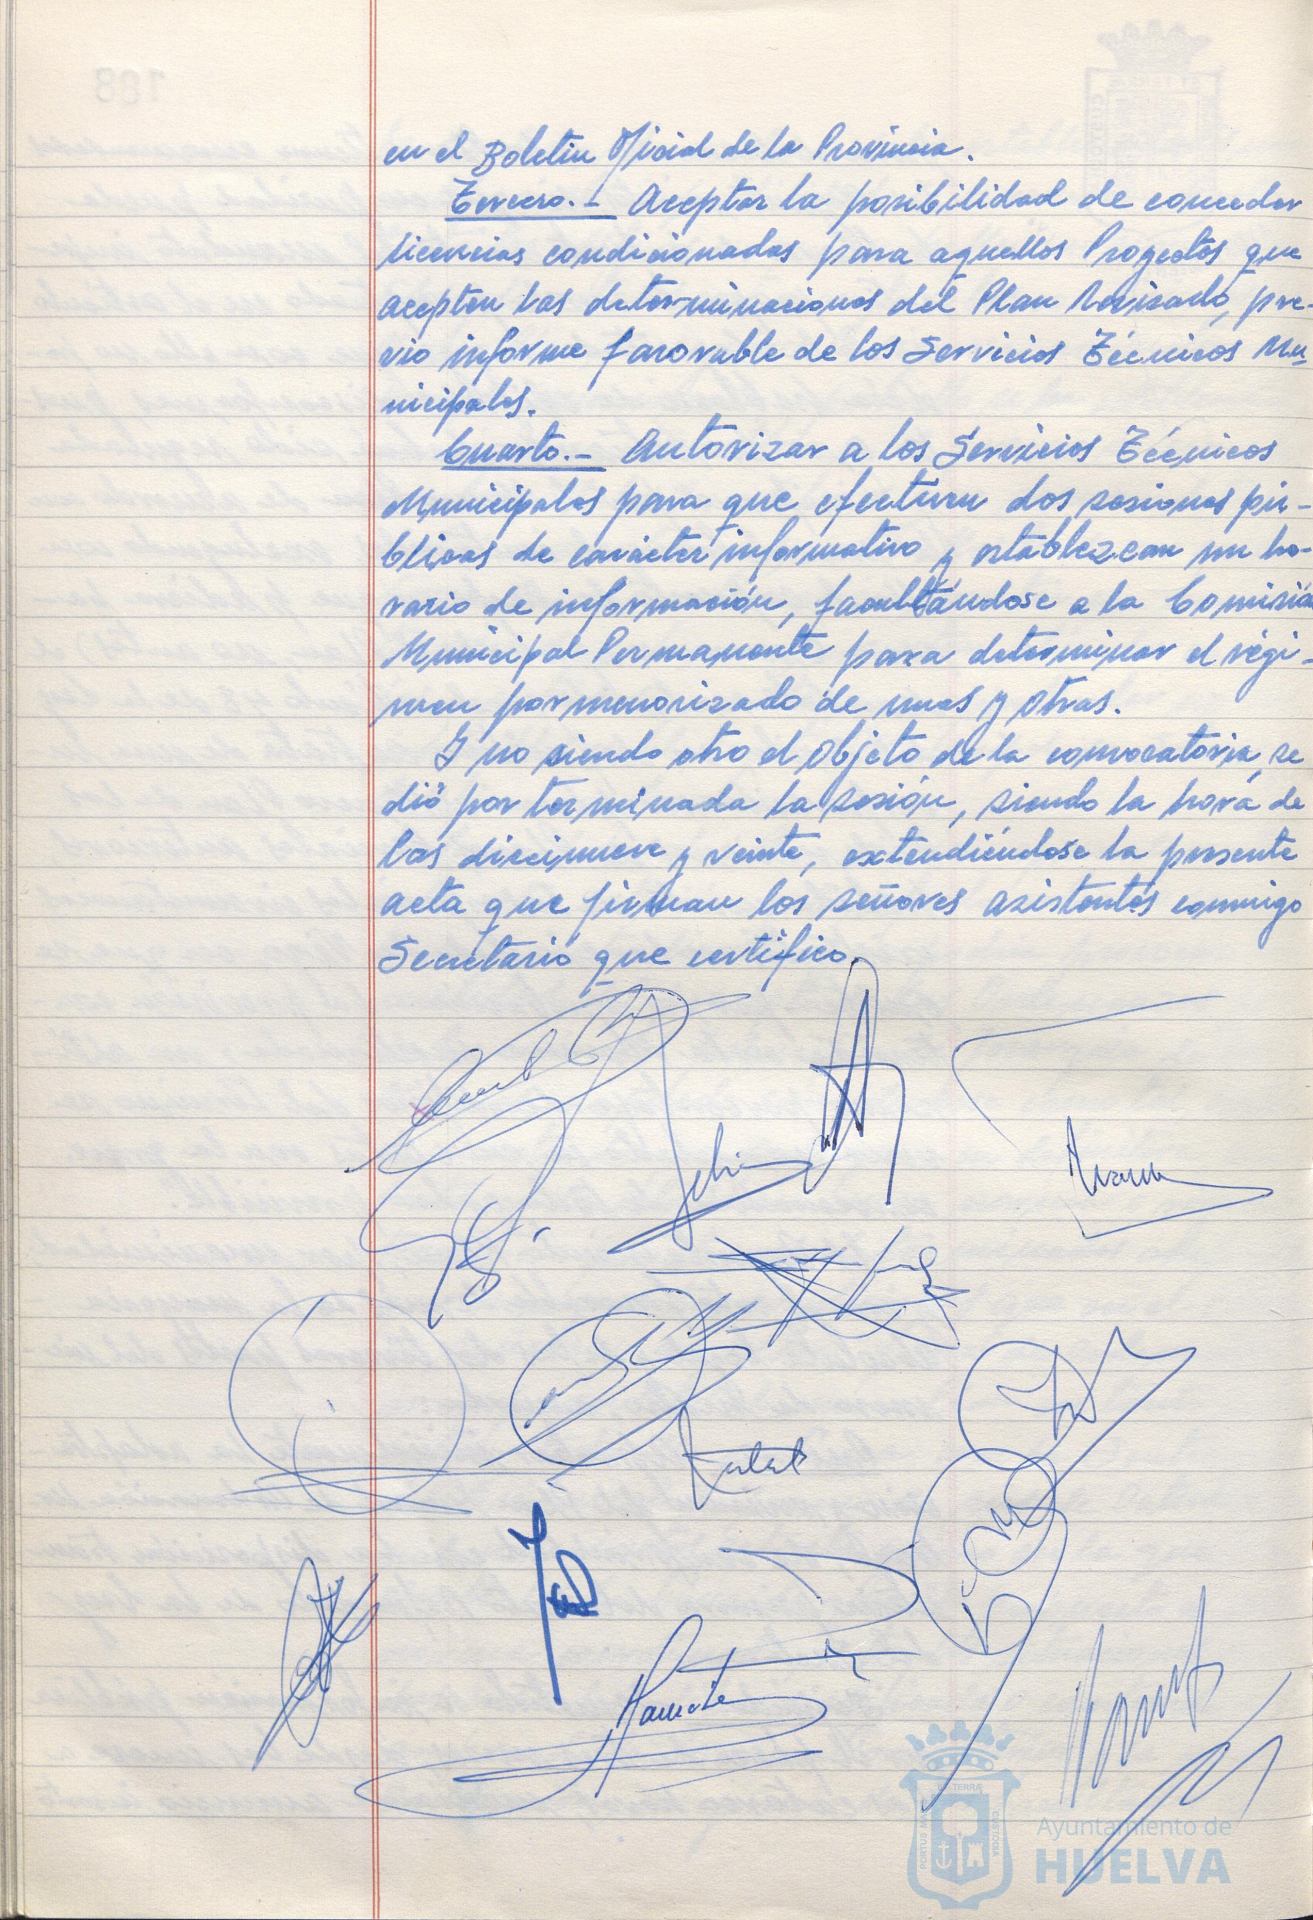 en el Boletin Oficial de la Provincia.
Tercero.- Aceptar la posibilidad de conceder
licencias condicionadas para aquellos Proyectos que
acepten las determinaciones del Plan Revisado, pre-
vio informe favorable de los Servicios Técnicos Mu-
nicipales.
Cuarto.- Autorizar a los Servicios Técnicos
Municipales para que efectuen dos sesiones pú-
blicas de carácter informativo y establezcan un ho-
rario de información, facultándose a la Comisión
Municipal Permanente para determinar el régi-
men pormenorizado de unas y otras.
Y no siendo otro el objeto de la convocatoria, se
dió por terminada la sesión, siendo la hora de
las diecinueve y veinte, extendiéndose la presente
acta que firman los señores asistentes conmigo
Secretario que certifico.
Ayuntamiento de
HUELVA